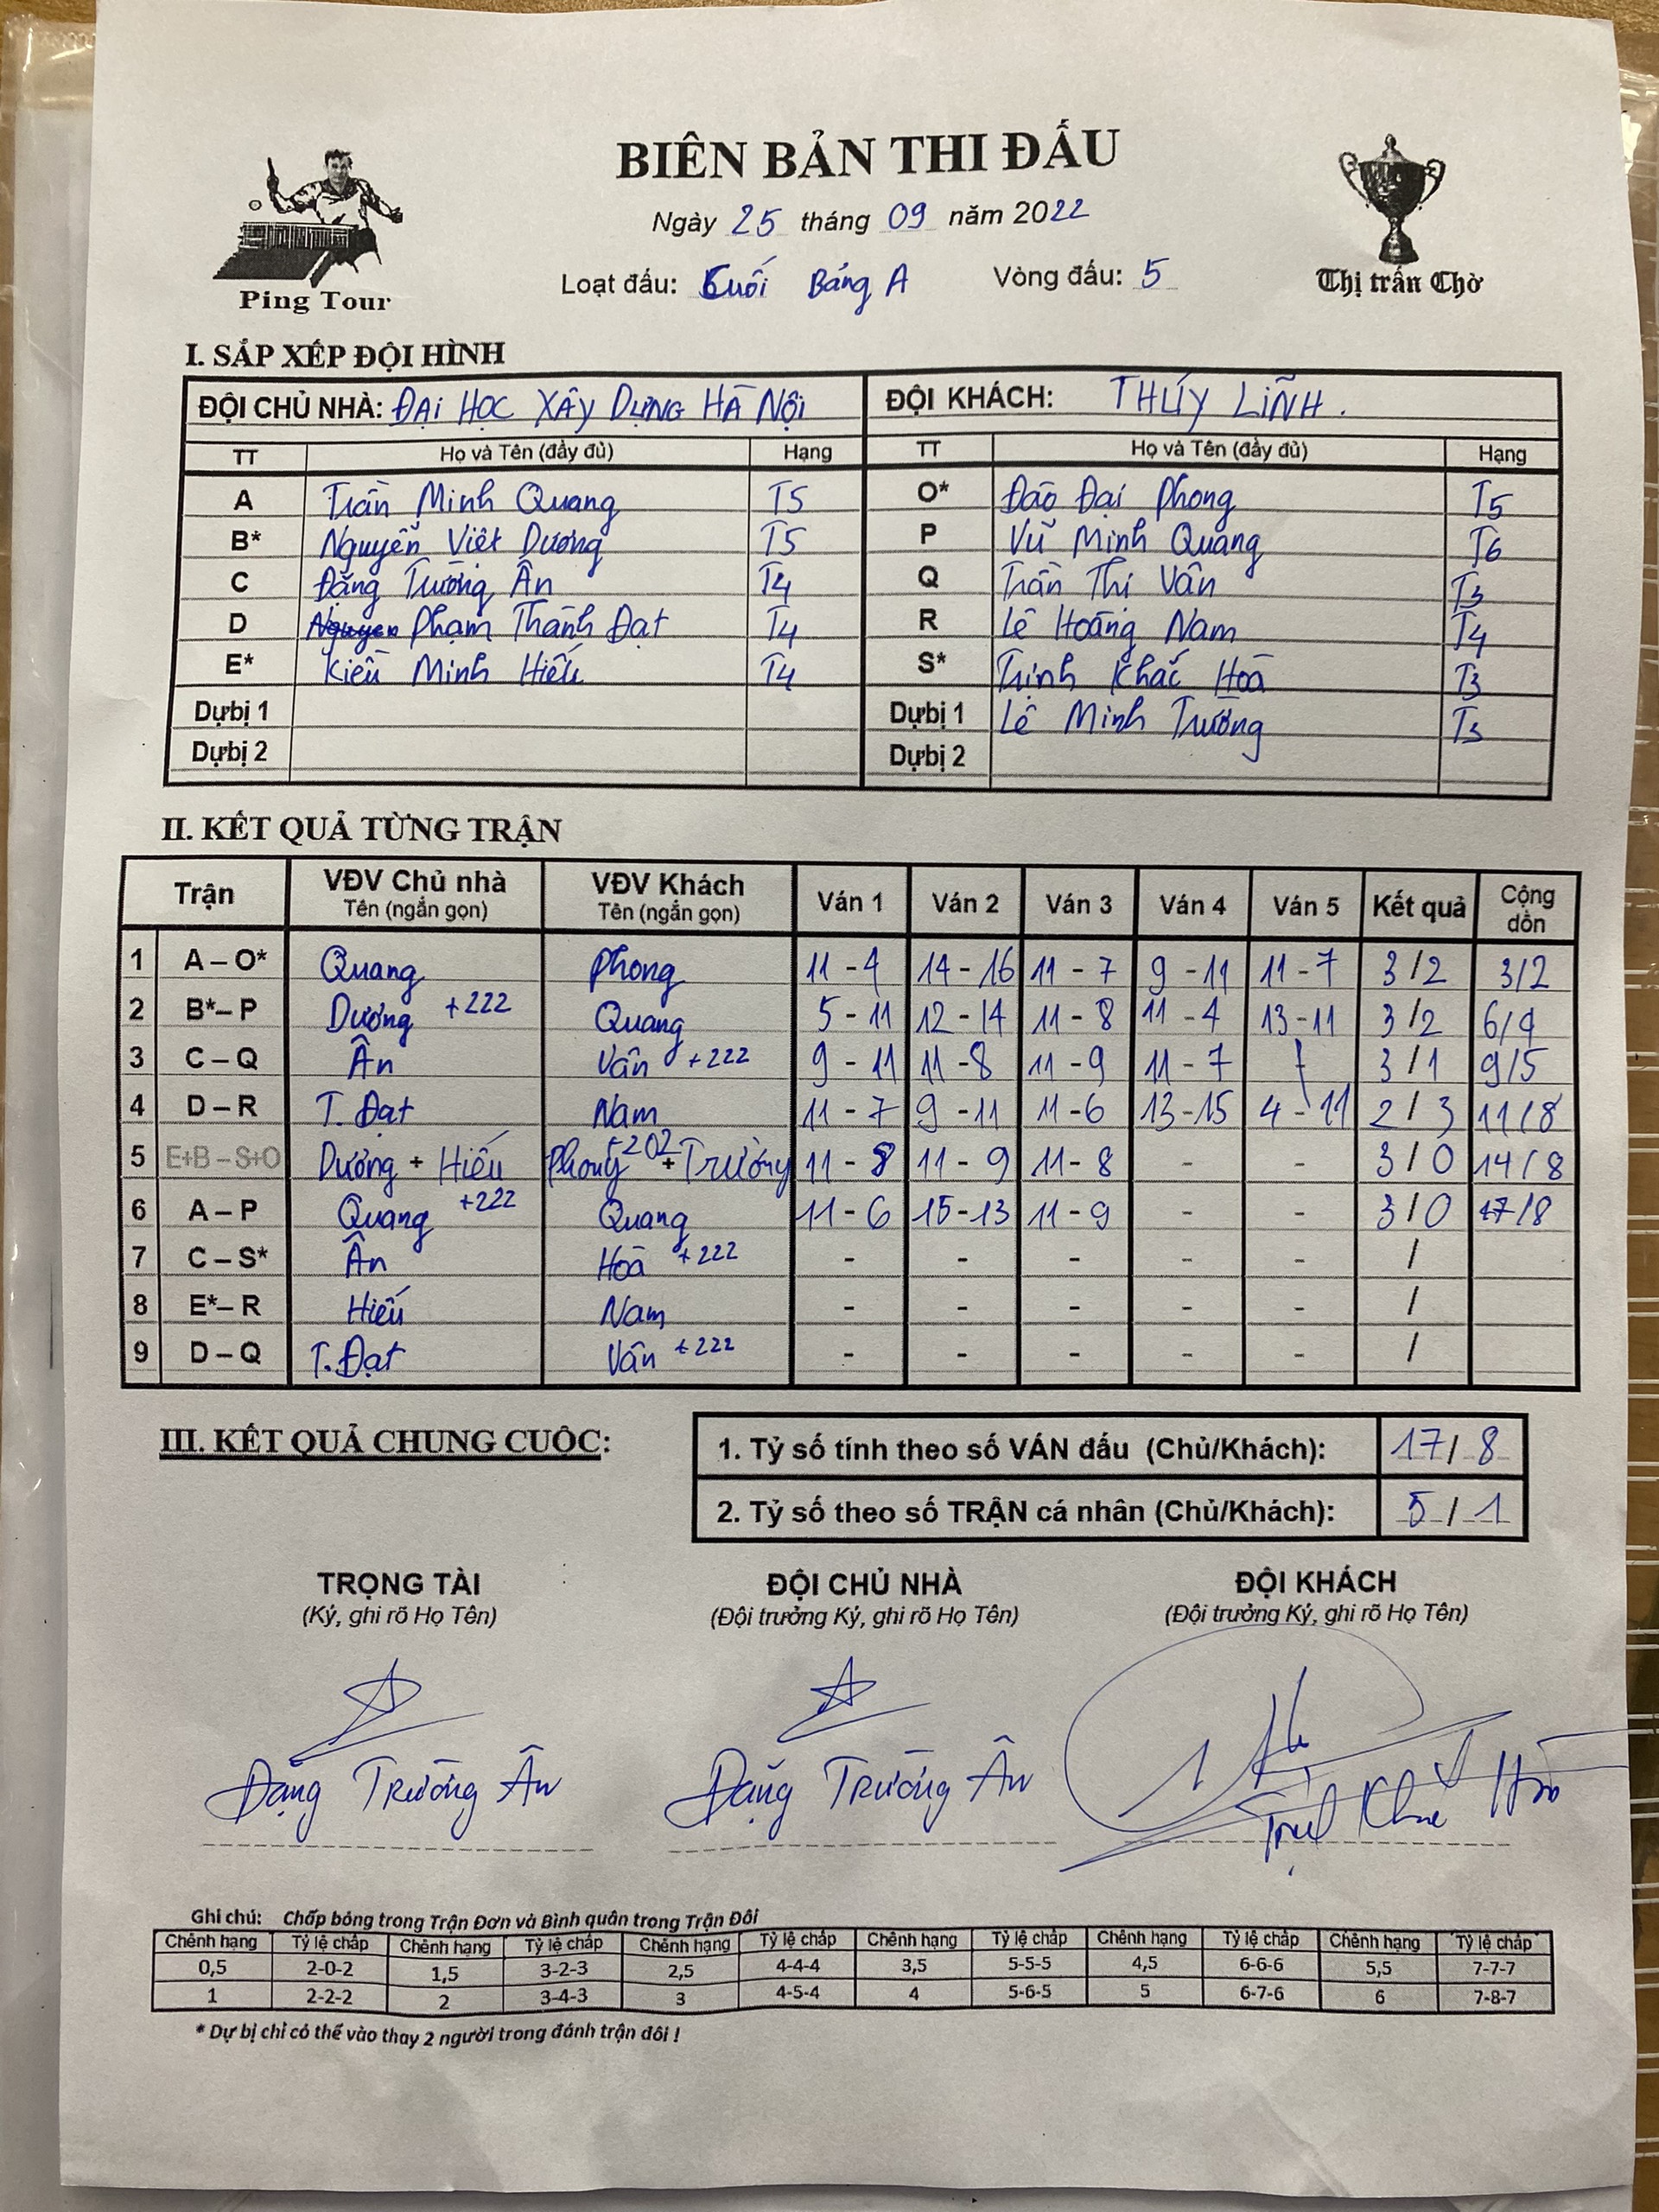 BIÊN BẢN THI ĐẤU
Ngày 25 tháng 09 năm 2022
Loạt đấu: Cuối Bảng A Vòng đấu: 5
Ping Tour
Thị trấn Chờ
I. SẮP XẾP ĐỘI HÌNH
ĐỘI CHỦ NHÀ: ĐẠI HỌC XÂY DỰNG HÀ NỘI ĐỘI KHÁCH: THÚY LINH.
TT Họ và Tên (đầy đủ) Hạng TT Họ và Tên (đầy đủ) Hạng
A Trần Minh Quang T5 O* Đào Đại Phong T5
B* Nguyễn Việt Dương T5 P Vũ Minh Quang T6
C Đặng Trường Ân T4 Q Trần Thị Vân T3
D Phạm Thành Đạt T4 R Lê Hoàng Nam T4
E* Kiều Minh Hiếu T4 S* Trịnh Khắc Hoà T3
Dự bị 1 Dự bị 1 Lê Minh Trường T3
Dự bị 2 Dự bị 2
II. KẾT QUẢ TỪNG TRẬN
Trận VĐV Chủ nhà VĐV Khách Ván 1 Ván 2 Ván 3 Ván 4 Ván 5 Kết quả Cộng dồn
Tên (ngắn gọn) Tên (ngắn gọn)
1 A – O* Quang Phong 11 - 4 14 - 16 11 - 7 9 - 11 11 - 7 3 / 2 3/2
2 B* – P Dương +222 Quang 5 - 11 12 - 14 11 - 8 11 - 4 13 - 11 3 / 2 6/4
3 C – Q Ân Vân +222 9 - 11 11 - 8 11 - 9 11 - 7 3 / 1 9/5
4 D – R T. Đạt Nam 11 - 7 9 - 11 11 - 6 13 - 15 4 - 11 2 / 3 11/8
5 E+B – S+O Dương + Hiếu Phong +202 + Trường 11 - 8 11 - 9 11 - 8 - - 3 / 0 14/8
6 A – P Quang +222 Quang 11 - 6 15 - 13 11 - 9 - - 3 / 0 17/8
7 C – S* Ân Hoà +222 - - - - - /
8 E* – R Hiếu Nam - - - - - /
9 D – Q T. Đạt Vân +222 - - - - - /
III. KẾT QUẢ CHUNG CUỘC:
1. Tỷ số tính theo số VÁN đấu (Chủ/Khách): 17 / 8
2. Tỷ số theo số TRẬN cá nhân (Chủ/Khách): 5 / 1
TRỌNG TÀI ĐỘI CHỦ NHÀ ĐỘI KHÁCH
(Ký, ghi rõ Họ Tên) (Đội trưởng Ký, ghi rõ Họ Tên) (Đội trưởng Ký, ghi rõ Họ Tên)
Đặng Trường Ân Đặng Trường Ân
Ghi chú: Chấp bóng trong Trận Đơn và Bình quân trong Trận Đôi
Chênh hạng Tỷ lệ chấp Chênh hạng Tỷ lệ chấp Chênh hạng Tỷ lệ chấp Chênh hạng Tỷ lệ chấp Chênh hạng Tỷ lệ chấp Chênh hạng Tỷ lệ chấp
0,5 2-0-2 1,5 3-2-3 2,5 4-4-4 3,5 5-5-5 4,5 6-6-6 5,5 7-7-7
1 2-2-2 2 3-4-3 3 4-5-4 4 5-6-5 5 6-7-6 6 7-8-7
* Dự bị chỉ có thể vào thay 2 người trong đánh trận đôi !